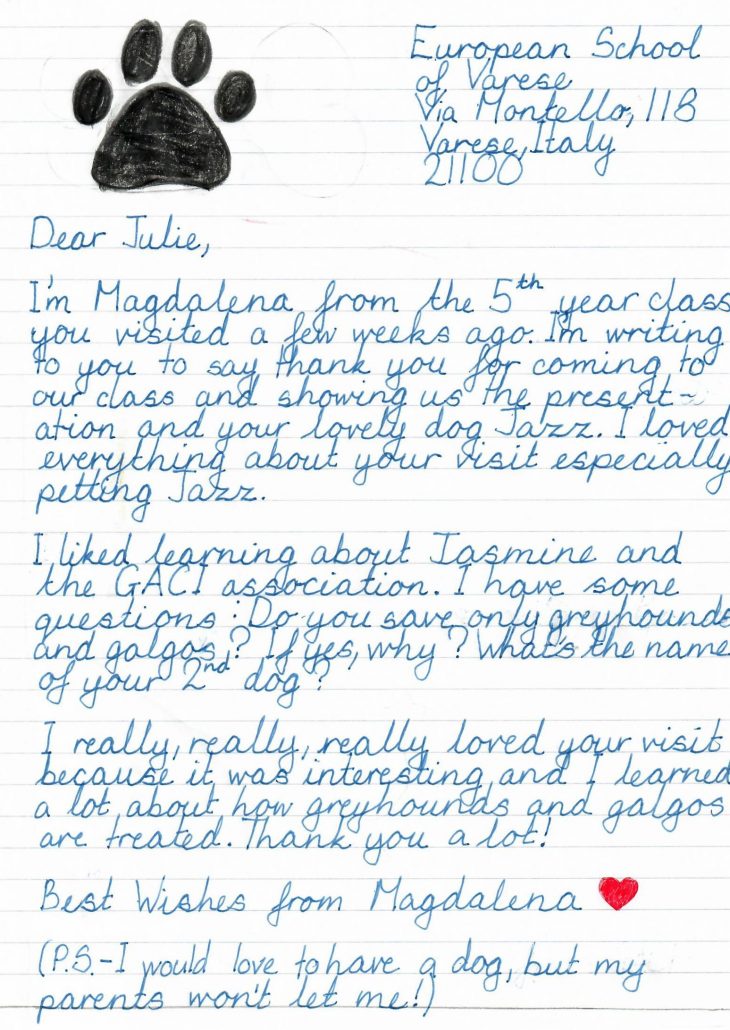 European School
of Varese
Via Montello, 118
Varese, Italy
21100
Dear Julie,
I'm Magdalena from the 5th year class
you visited a few weeks ago. I'm writing
to you to say thank you for coming to
our class and showing us the present-
ation and your lovely dog Jazz. I loved
everything about your visit especially
petting Jazz.
I liked learning about Jasmine and
the GACI association. I have some
questions: Do you save only greyhounds
and galgos? If yes, why? What's the name
of your 2nd dog?
I really, really, really loved your visit
because it was interesting and I learned
a lot about how greyhounds and galgos
are treated. Thank you a lot!
Best Wishes from Magdalena
(P.S.-I would love to have a dog, but my
parents won't let me!)